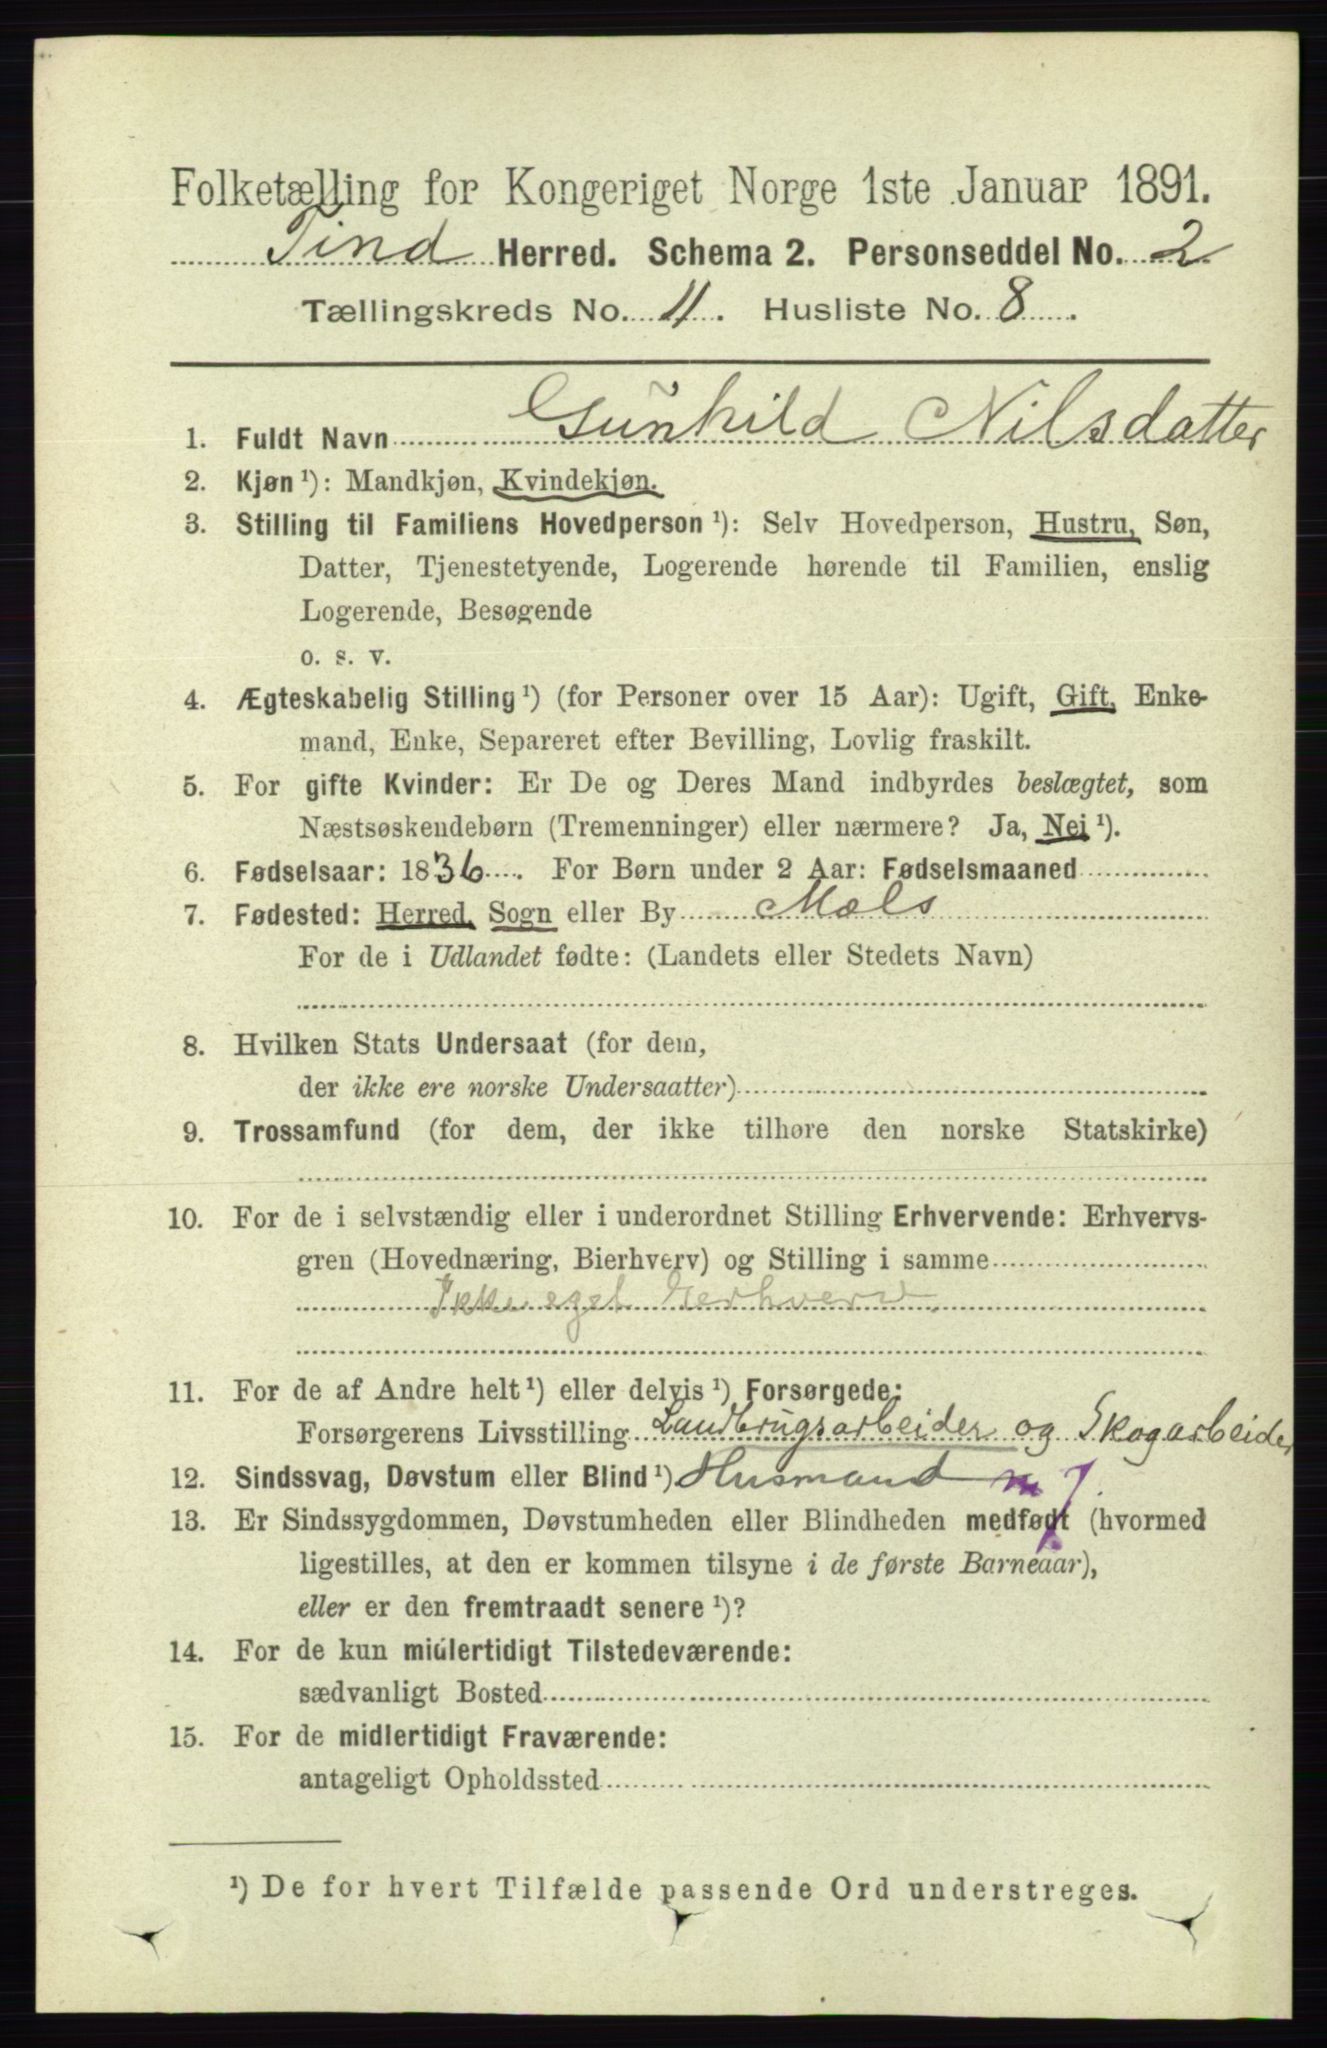 Folketælling for Kongeriget Norge 1ste Januar 1891.
Tind Herred. Schema 2. Personseddel No. 2
Tællingskreds No. 11. Husliste No. 8.
1. Fuldt Navn Gunhild Nilsdatter
2. Kjøn ¹): Mandkjøn, Kvindekjøn.
3. Stilling til Familiens Hovedperson ¹): Selv Hovedperson, Hustru, Søn,
Datter, Tjenestetyende, Logerende hørende til Familien, enslig
Logerende, Besøgende
o. s. v.
4. Ægteskabelig Stilling ¹) (for Personer over 15 Aar): Ugift, Gift, Enke-
mand, Enke, Separeret efter Bevilling, Lovlig fraskilt.
5. For gifte Kvinder: Er De og Deres Mand indbyrdes beslægtet, som
Næstsøskendebørn (Tremenninger) eller nærmere? Ja, Nei ¹).
6. Fødselsaar: 1836. For Børn under 2 Aar: Fødselsmaaned
7. Fødested: Herred, Sogn eller By Mæls
For de i Udlandet fødte: (Landets eller Stedets Navn)
8. Hvilken Stats Undersaat (for dem,
der ikke ere norske Undersaatter)
9. Trossamfund (for dem, der ikke tilhøre den norske Statskirke)
10. For de i selvstændig eller i underordnet Stilling Erhvervende: Erhvervs-
gren (Hovednæring, Bierhverv) og Stilling i samme
Ikke eget Erhverv.
11. For de af Andre helt ¹) eller delvis ¹) Forsørgede:
Forsørgerens Livsstilling Landbrugsarbeider og Skogarbeider
12. Sindssvag, Døvstum eller Blind ¹) Husmand m J.
13. Er Sindssygdommen, Døvstumheden eller Blindheden medfødt (hvormed
ligestilles, at den er kommen tilsyne i de første Barneaar),
eller er den fremtraadt senere ¹)?
14. For de kun midlertidigt Tilstedeværende:
sædvanligt Bosted
15. For de midlertidigt Fraværende:
antageligt Opholdssted
¹) De for hvert Tilfælde passende Ord understreges.